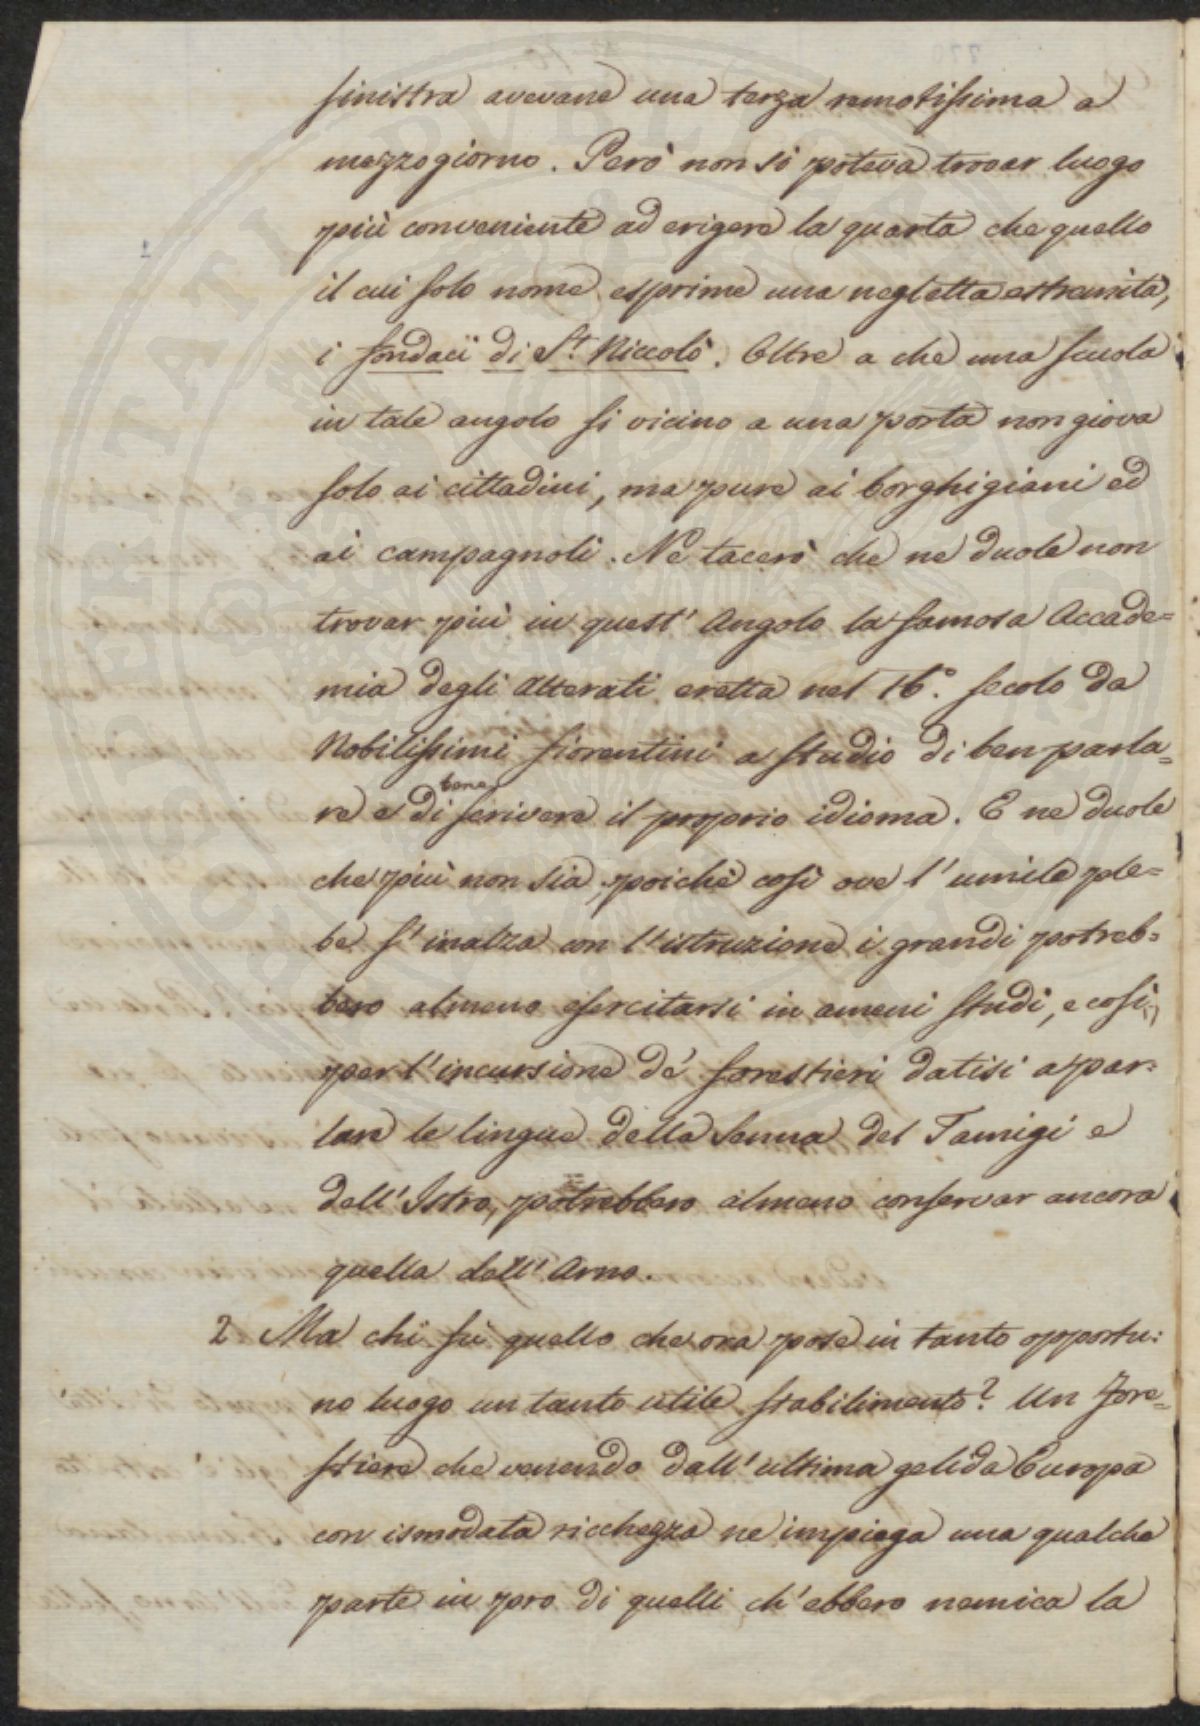 sinistra avevane una terza remotissima a
mezzogiorno. Però non si poteva trovar luogo
più conveniente ad erigere la quarta che quello
il cui solo nome esprime una negletta estremità,
i fondacci di St. Niccolò. Oltre a che una scuola
in tale angolo si vicino a una porta non giova
solo ai cittadini, ma pure ai borghigiani ed
ai campagnoli. Nè tacerò che ne duole non
trovar più in quest' Angolo la famosa Accade=
mia degli Alterati eretta nel 16.° secolo da
Nobilissimi fiorentini a studio di ben parla=
re e di bene scrivere il proprio idioma. E ne duole
che più non sia, poichè così ove l'umile ple=
be s'inalza con l'istruzione i grandi potreb=
bero almeno esercitarsi in ameni studi, e così
per l'incursione de' forestieri datisi a par=
lare le lingue della Senna del Tamigi e
dell'Istro, potrebbero almeno conservar ancora
quella dell'Arno.
2 Ma chi fu quello che ora pose in tanto opportu=
no luogo un tanto utile stabilimento? Un fore=
stiere che venendo dall'ultima gelida Europa
con ismodata ricchezza ne impiega una qualche
parte in pro di quelli ch'ebbero nemica la